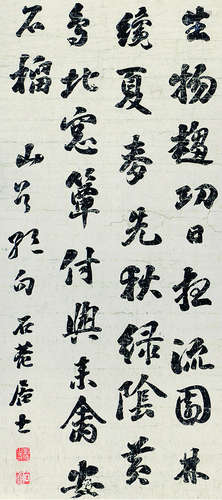 生物趨功日夜流園林
纔夏麥先秋綠陰黃
鳥北窓簟付與來禽安
石榴 山谷絕句 石菴居士